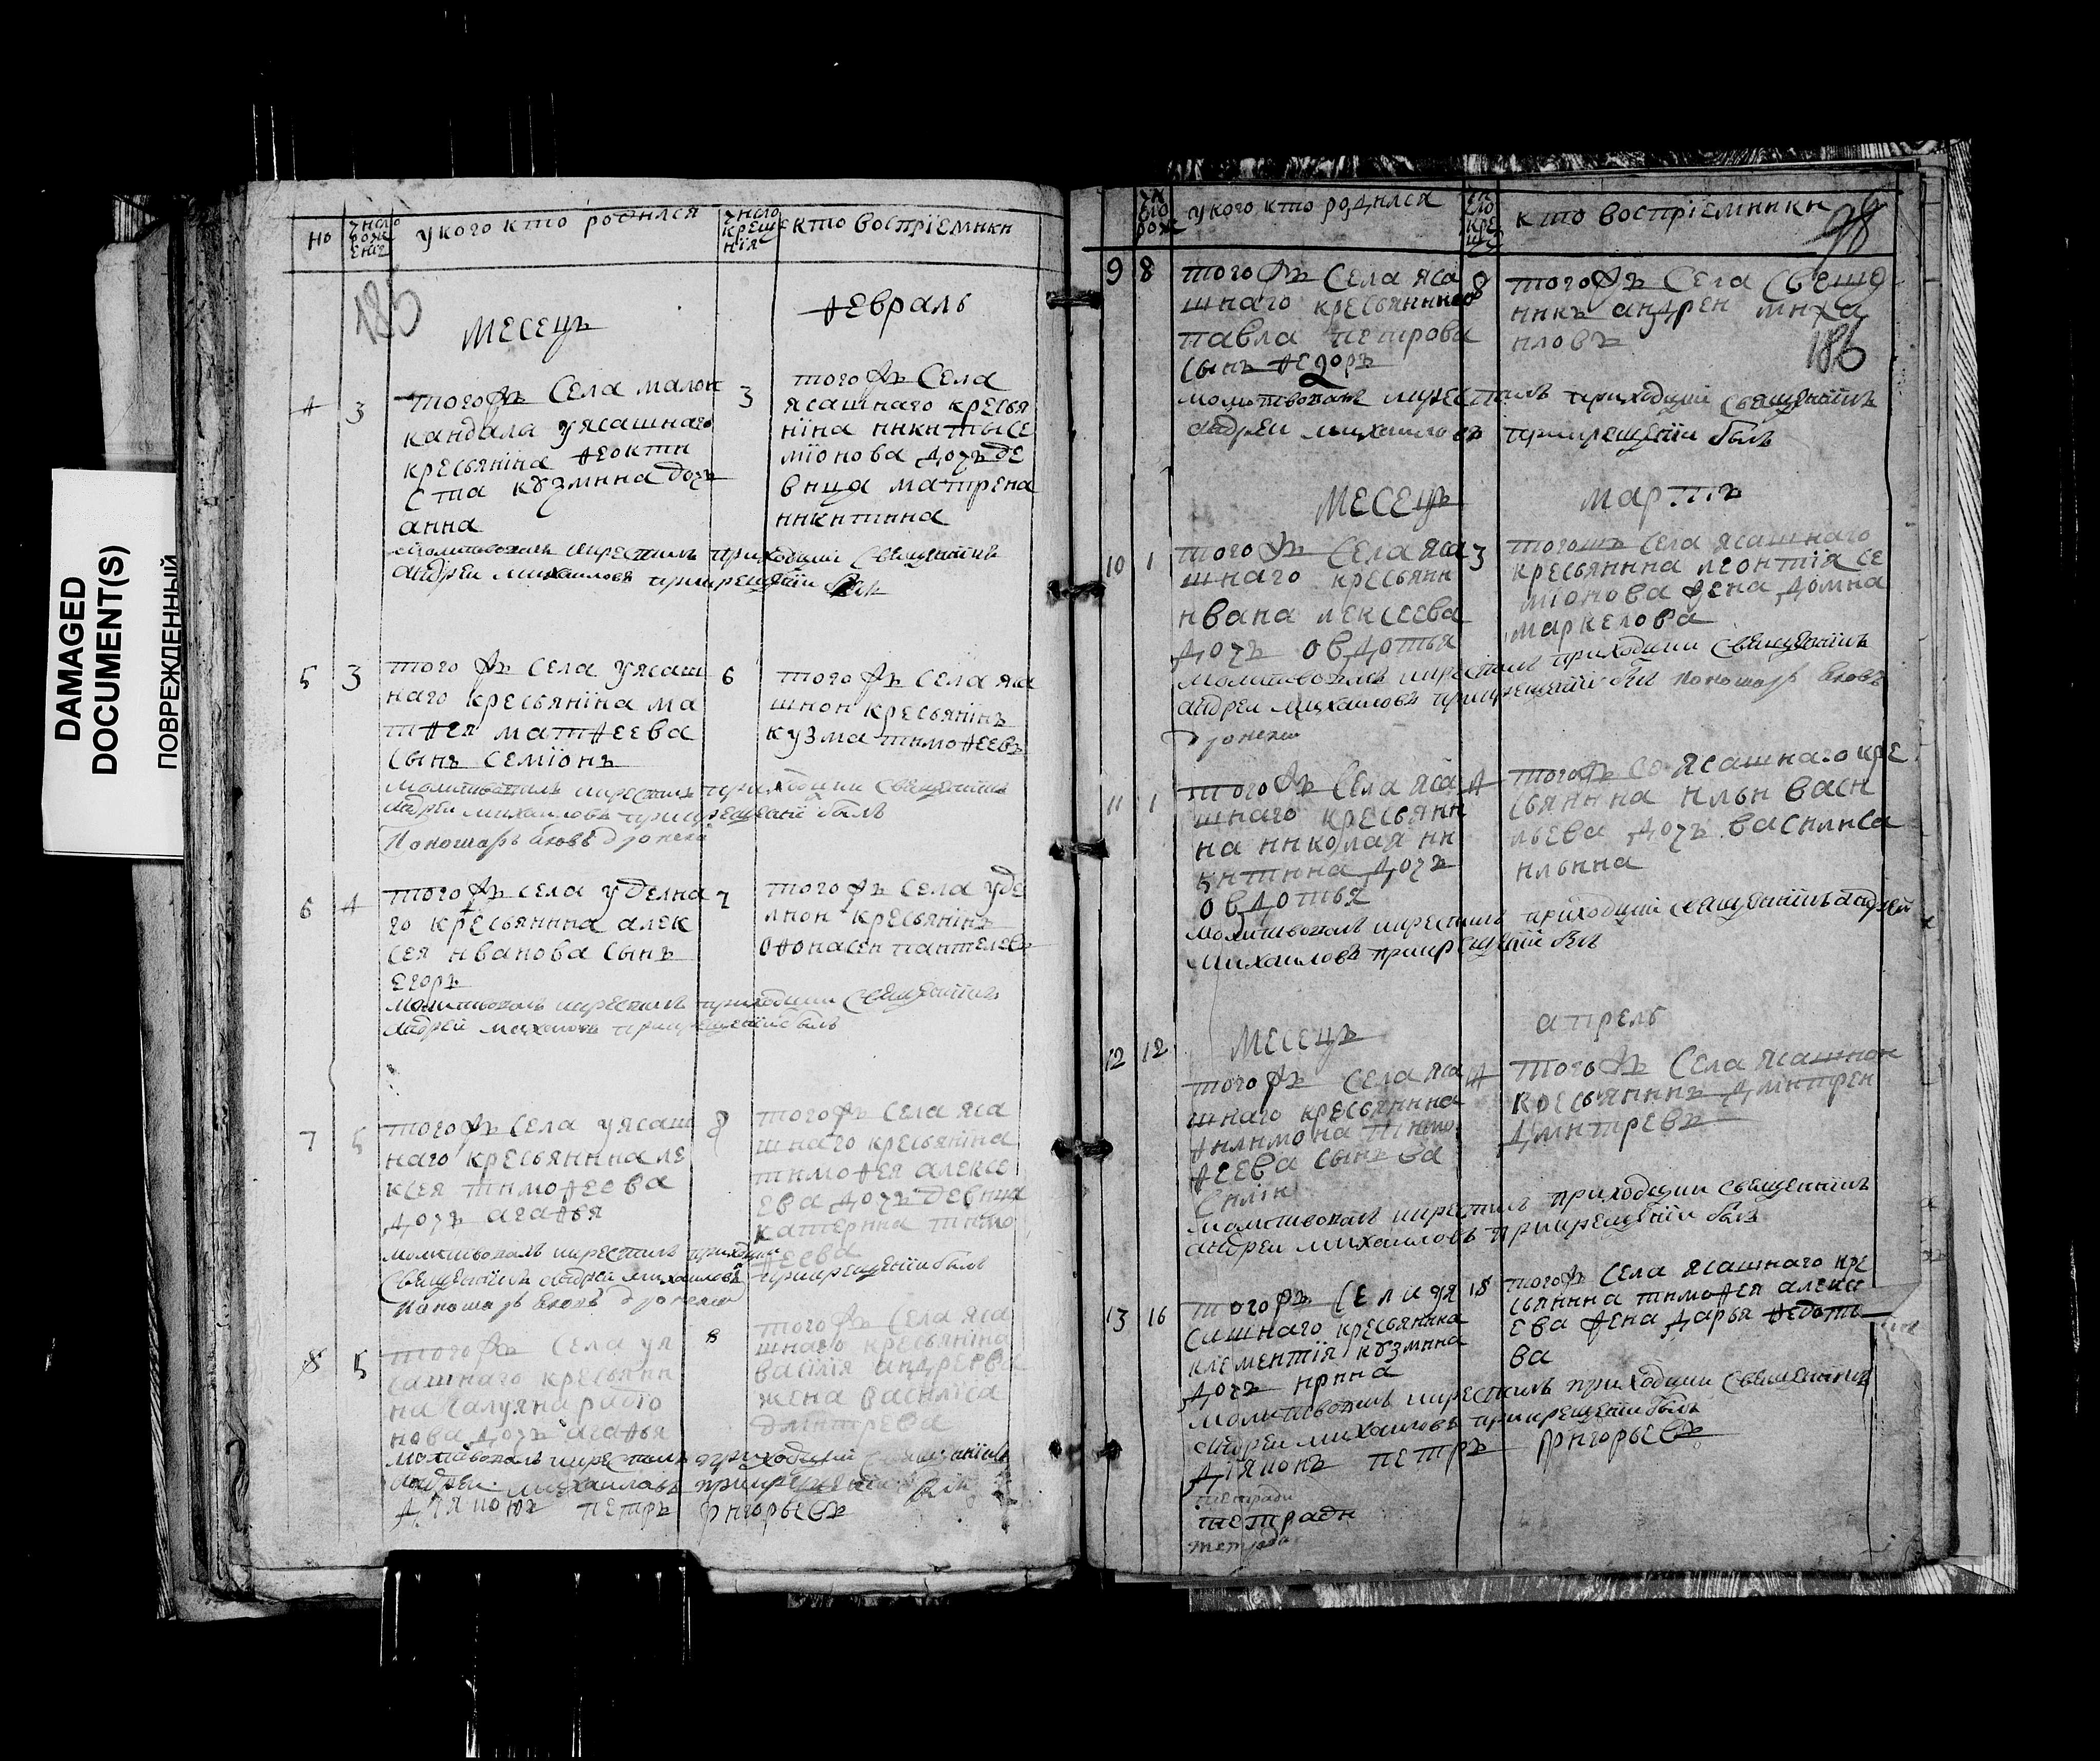 DAMAGED
DOCUMENT(S)
ПОВРЕЖДЕННЫЙ
но
число рож ения
у кого кто родился
число крещ ния
кто воспрїемники
185
месецъ
февраль
4 3
тогожъ села малои
кандала уясашнаго
кресьянїна феокти
ста кузмина дочь
анна
3
тогожъ села
ясашнаго кресья
нїна никиты се
мїонова дочъ де
вица матрена
никитина
молитвовалъ икрестилъ приходцкии священникъ
андреи михаиловъ прикрещенїи былъ
5 3
того жъ села уясаш
наго кресьянїна ма
тфея матфеева
сынъ семїонъ
6
того жъ села яса
шнои кресьянїнъ
кузма тимофеевъ
молитвовалъ икрестилъ приходцкии священникъ
андреи михаиловъ прикрещенїи былъ
6 4
того жъ села уделна
го кресьянина алек
сея иванова сынъ
егоръ
7
того жъ села уде
лнои кресьянїнъ
офонасеи пантелеевъ
молитвовалъ икрестилъ приходцкии священникъ
андреи михаиловъ прикрещенїи былъ
7 5
тогожъ села уясаш
наго кресьянина ле
ксея тимофеева
дочъ агафья
8
тогожъ села яса
шнаго кресьянїна
тимофея алексе
ева дочъ девица
катерина тимо
феева
молитвовалъ икрестилъ приходцкии
священникъ андреи михаиловъ прикрещенїи былъ
8 5
тогожъ села уя
сашнаго кресьяни
на
нова дочъ агафья
8
тогожъ села яса
шнаго кресьянїна
васїлїя андреева
жена василїса
дмитрева
молитвовалъ икрестилъ приходцкии священникъ
андреи михаиловъ прикрещенїи былъ
дїяконъ петръ григорьевъ
чи сло рож
у кого кто родился
чи сло кре щ
кто воспрїемники
98
186
9 8
того жъ села яса
шнаго кресьянина
павла петрова
сынъ федоръ
8
того жъ села свеще
никъ андреи миха
иловъ
молитвовалъ икрестилъ приходцкии священникъ
андреи михаиловъ прикрещенїи былъ
месецъ
мартъ
10 1
того жъ села яса
шнаго кресьяни
ивана лексеева
дочъ овдотья
3
тогожъ села ясашнаго
кресьянина леонтїя се
мїонова жена домна
маркелова
молитвовалъ икрестилъ приходцкии священникъ
андреи михаиловъ прикрещенїи был
11 1
того жъ села яса
шнаго кресьяни
на николая ни
китина дочъ
овдотья
4
тогожъ се ясашнаго кре
сьянина ильи васи
льева дочъ василиса
ильина
молитвовалъ икрестилъ приходцкии священникъ андреи
михаиловъ прикрещенїи былъ
месецъ
апрель
12 12
того жъ села яса
шнаго кресьянина
филимона тимо
феева сынъ ва
силїи
14
того жъ села ясашнои
кресьянинъ дмитреи
дмитревъ
молитвовалъ икрестилъ приходцкии священникъ
андреи михаиловъ прикрещенїи былъ
13 16
тогожъ села уя
сашнаго кресьянина
клементїя кузмина
дочъ ирина
18
тогожъ села ясашнаго кре
сьянина тимофея алексе
ева жена дарья федото
ва
молитвовалъ икрестилъ приходцкии священникъ
андреи михаиловъ прикрещенїи былъ
дїяконъ петръ григорьевъ
тетради
тетради
тетради